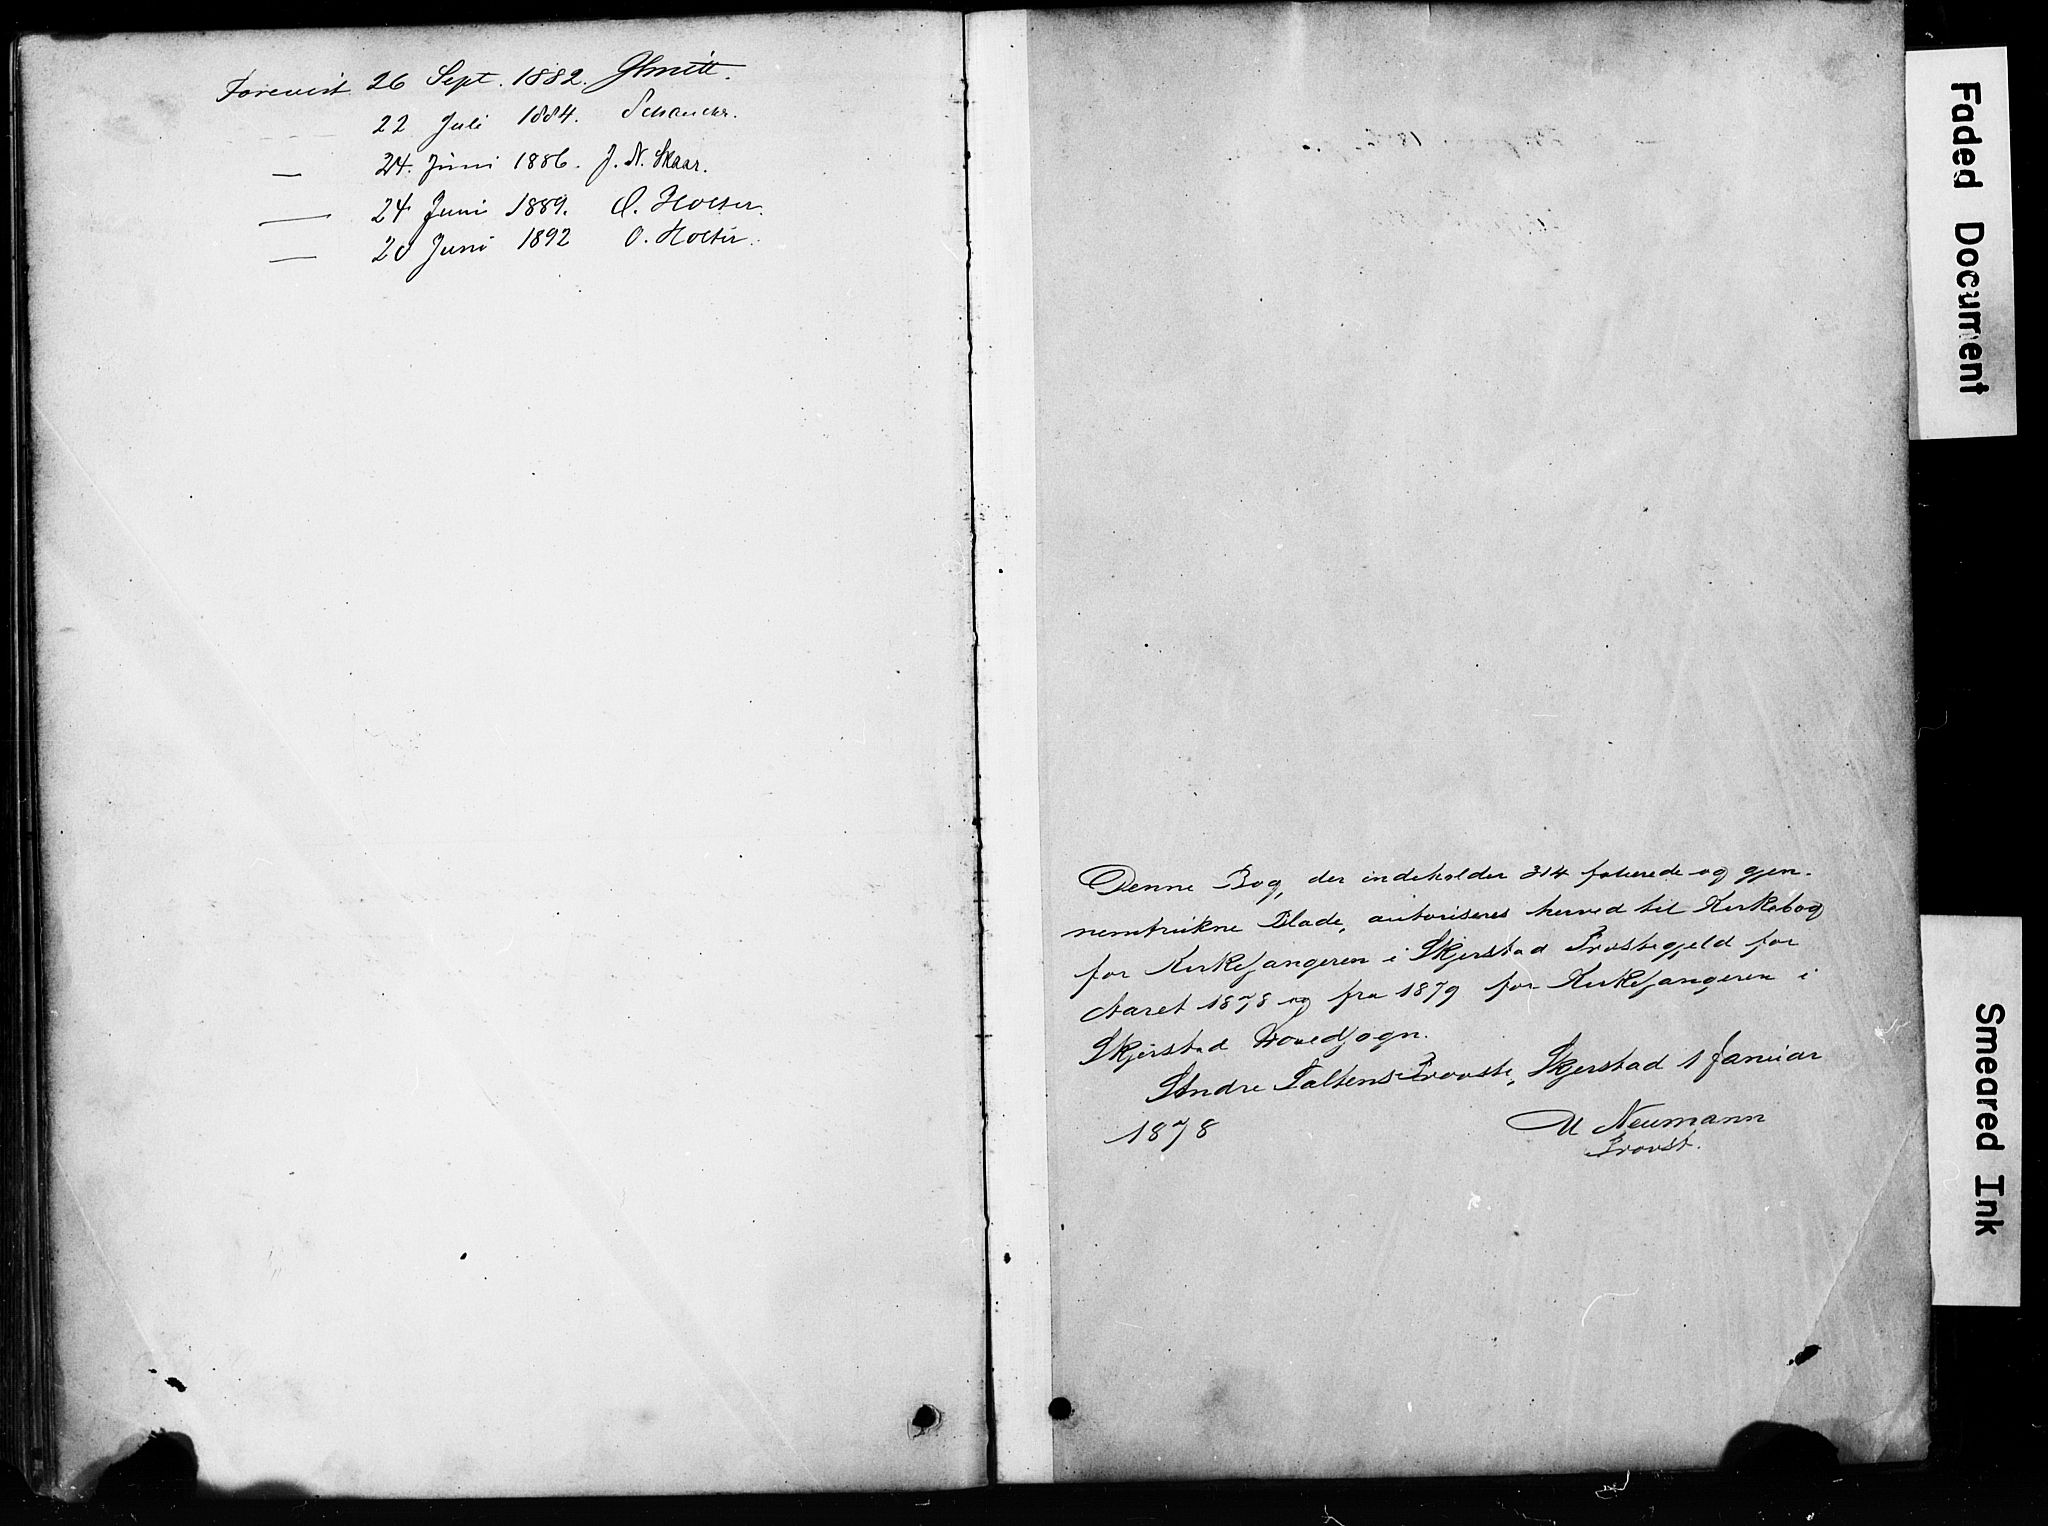 Forevist 26 Sept. 1882. Smitt.
22 Juli 1884.
— 24. Juni 1886. J. N. Skaar.
— 24 Juni 1889. O. Holter.
— 20 Juni 1892 O. Holter.
Denne Bog, der indeholder 314 folierede og gjen-
nemtrukne Blade, autoriseres herved til Kirkebog
for Kirkesangeren i Skjerstad Præstegjeld for
Aaret 1878 og fra 1879 for Kirkesangeren i
Skjerstad Hovedsogn.
Søndre Saltens Provsti, Skjerstad 1 Januar
1878 Neumann
Provst.
Faded Document
Smeared Ink